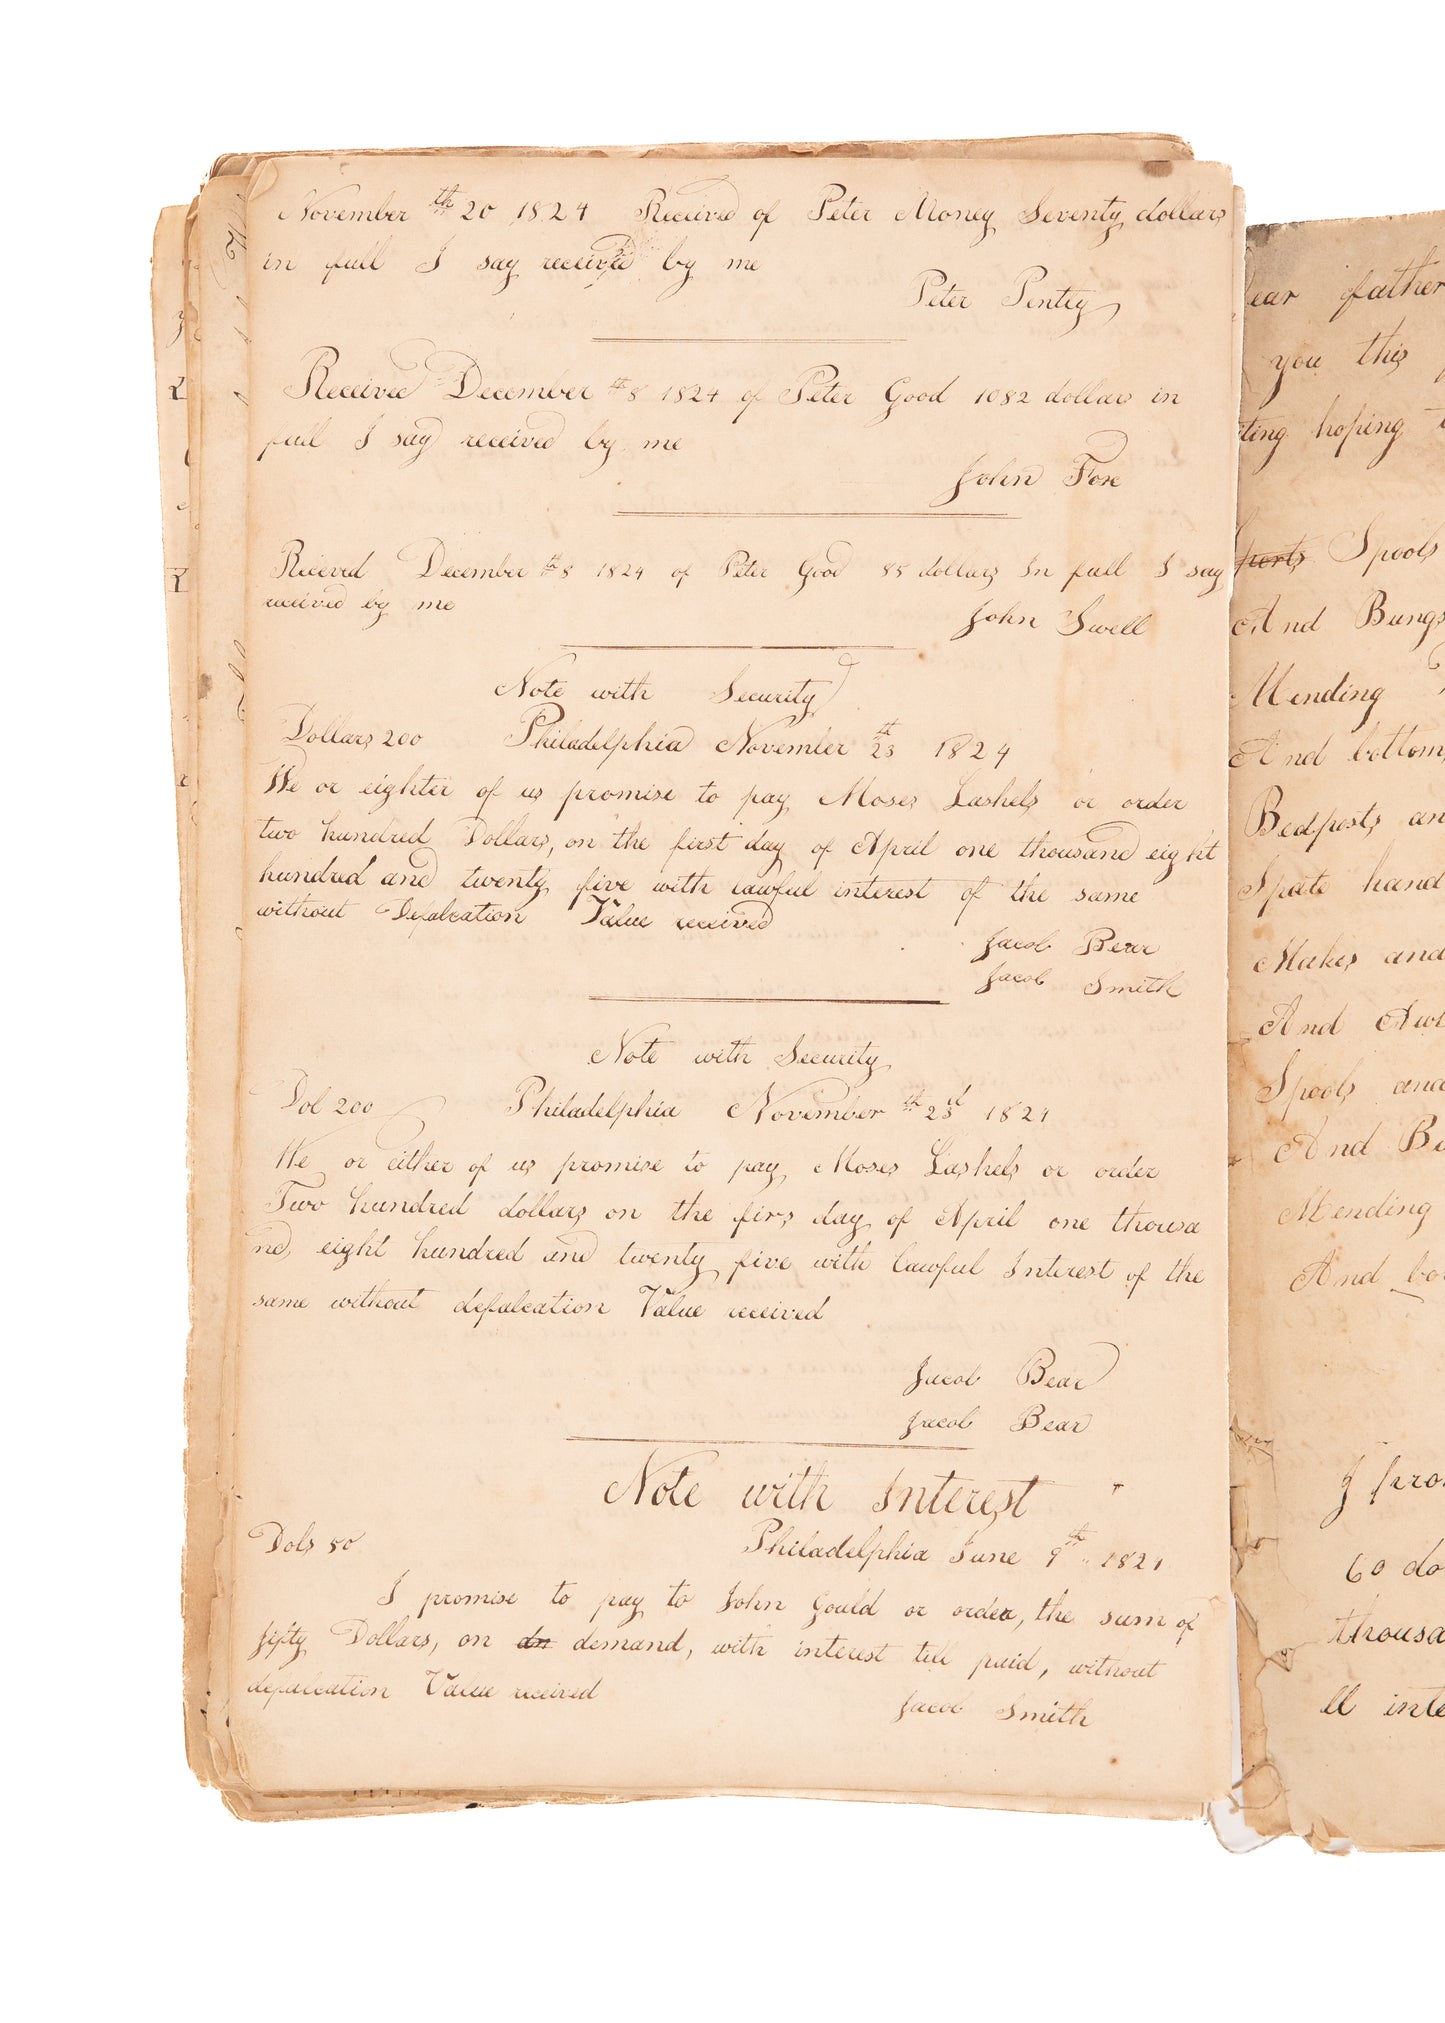 November th 20 1824 Received of Peter Money Seventy dollars
in full I say received by me
Peter Pentey
Received December th 8 1824 of Peter Good 1082 dollars in
full I say received by me
John Fore
Riceved December th 8 1824 of Peter Good 85 dollars In full I say
received by me
John Swell
Note with Security
Dollars 200 Philadelphia November th 23 1824
We or eighter of us promise to pay Moses Lashels or order
two hundred Dollars, on the first day of April one thousand eight
hundred and twenty five with lawful interest of the same
without Defalcation Value received
Jacob Bear
Jacob Smith
Note with Security
Dol 200 Philadelphia November th 23d 1824
We or either of us promise to pay Moses Lashels or order
Two hundred dollars on the firs day of April one thousa
nd eight hundred and twenty five with lawful Interest of the
same without defalcation Value received
Jacob Bear
Jacob Bear
Note with Interest
Dols 50 Philadelphia June 9th 1824
I promise to pay to John Gould or order, the sum of
fifty Dollars, on dn demand, with interest till paid, without
defalcation Value received
Jacob Smith
ear father
you this
ting hoping
Spools
And Bungs
Mending
And bottom
Bedposts an
Spate hand
Makes and
And Aw
Spools and
And Be
Mending
And bo
I pro
60 do
thousa
ll inte